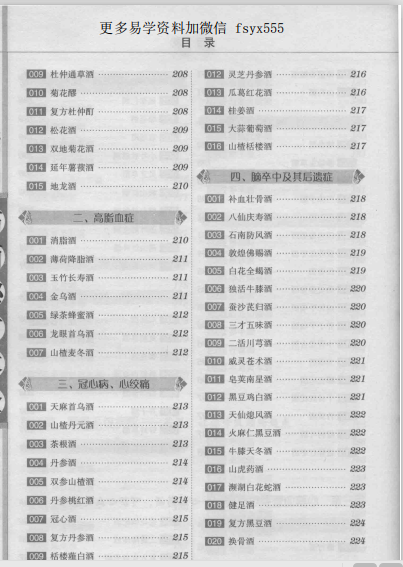 更多易学资料加微信 fsyx555
目 录
009 杜仲通草酒 208
010 菊花醪 208
011 复方杜仲酊 208
012 松花酒 209
013 双地菊花酒 209
014 延年薯蓣酒 209
015 地龙酒 210
二、高脂血症
001 消脂酒 210
002 薄荷降脂酒 211
003 玉竹长寿酒 211
004 金乌酒 211
005 绿茶蜂蜜酒 212
006 龙眼首乌酒 212
007 山楂麦冬酒 212
三、冠心病、心绞痛
001 天麻首乌酒 213
002 山楂丹元酒 213
003 茶根酒 213
004 丹参酒 214
005 双参山楂酒 214
006 丹参桃红酒 214
007 冠心酒 215
008 复方丹参酒 215
009 栝楼薤白酒 215
012 灵芝丹参酒 216
013 瓜葛红花酒 216
014 桂姜酒 217
015 大蒜葡萄酒 217
016 山楂栝楼酒 217
四、脑卒中及其后遗症
001 补血壮骨酒 218
002 八仙庆寿酒 218
003 石南防风酒 218
004 敦煌佛赐酒 219
005 白花全蝎酒 219
006 独活牛膝酒 220
007 蚕沙芪归酒 220
008 三才五味酒 220
009 二活川芎酒 220
010 威灵苍术酒 221
011 皂荚南星酒 221
012 黑豆鸡白酒 221
013 天仙熄风酒 222
014 火麻仁黑豆酒 222
015 牛膝天冬酒 222
016 山虎药酒 223
017 濒湖白花蛇酒 223
018 健足酒 223
019 复方黑豆酒 224
020 换骨酒 224